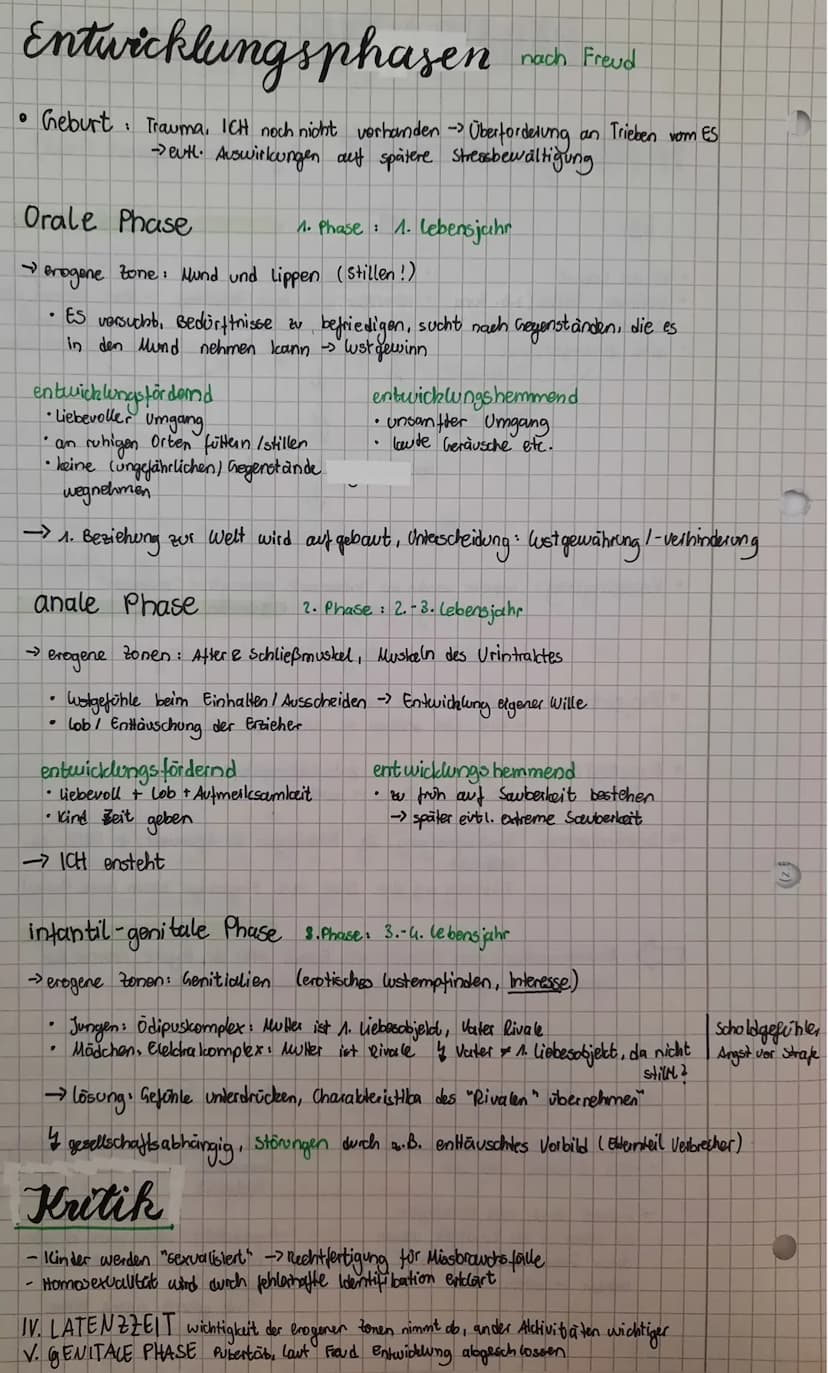 Entwicklungsphasen nach Freud
• Geburt : Trauma, ICH noch nicht vorhanden -> Überforderung an Trieben vom ES
-> evtl. Auswirkungen auf spätere Stressbewältigung
Orale Phase 1. Phase : 1. Lebensjahr
-> erogene Zone : Mund und Lippen (Stillen!)
• ES versucht, Bedürfnisse zu befriedigen, sucht nach Gegenständen, die es
in den Mund nehmen kann -> Lustgewinn
entwicklungsfördernd entwicklungshemmend
• Liebevoller Umgang • unsanfter Umgang
• an ruhigen Orten füttern / stillen • laute Geräusche etc.
• keine (ungefährlichen) Gegenstände
wegnehmen
-> 1. Beziehung zur Welt wird aufgebaut, Unterscheidung : Lustgewährung / -verhinderung
anale Phase 2. Phase : 2.-3. Lebensjahr
-> erogene Zonen : After & Schließmuskel, Muskeln des Urintraktes
• Lustgefühle beim Einhalten / Ausscheiden -> Entwicklung eigener Wille
• Lob / Enttäuschung der Erzieher
entwicklungsfördernd entwicklungshemmend
• Liebevoll + Lob + Aufmerksamkeit • zu früh auf Sauberkeit bestehen
• Kind Zeit geben -> später evtl. extreme Sauberkeit
-> ICH ensteht
infantil-genitale Phase 3. Phase : 3.-4. Lebensjahr
-> erogene Zonen : Genitialien (erotisches Lustempfinden, Interesse)
• Jungen : Ödipuskomplex : Mutter ist 1. Liebesobjekt, Vater Rivale
• Mädchen : Elektrakomplex : Mutter ist Rivale ↯ Vater ≠ 1. Liebesobjekt, da nicht
stillt?
Schuldgefühle,
Angst vor Strafe
-> Lösung : Gefühle unterdrücken, Charakteristika des "Rivalen" übernehmen"
↯ gesellschaftsabhängig, Störungen durch z.B. enttäuschtes Vorbild (Elternteil Verbrecher)
Kritik
- Kinder werden "sexualisiert" -> Rechtfertigung für Missbrauchsfälle
- Homosexualität wird durch fehlerhafte Identifikation erklärt
IV. LATENZZEIT wichtigkeit der erogenen Zonen nimmt ab, ander Aktivitäten wichtiger
V. GENITALE PHASE Pubertät, laut Freud Entwicklung abgeschlossen